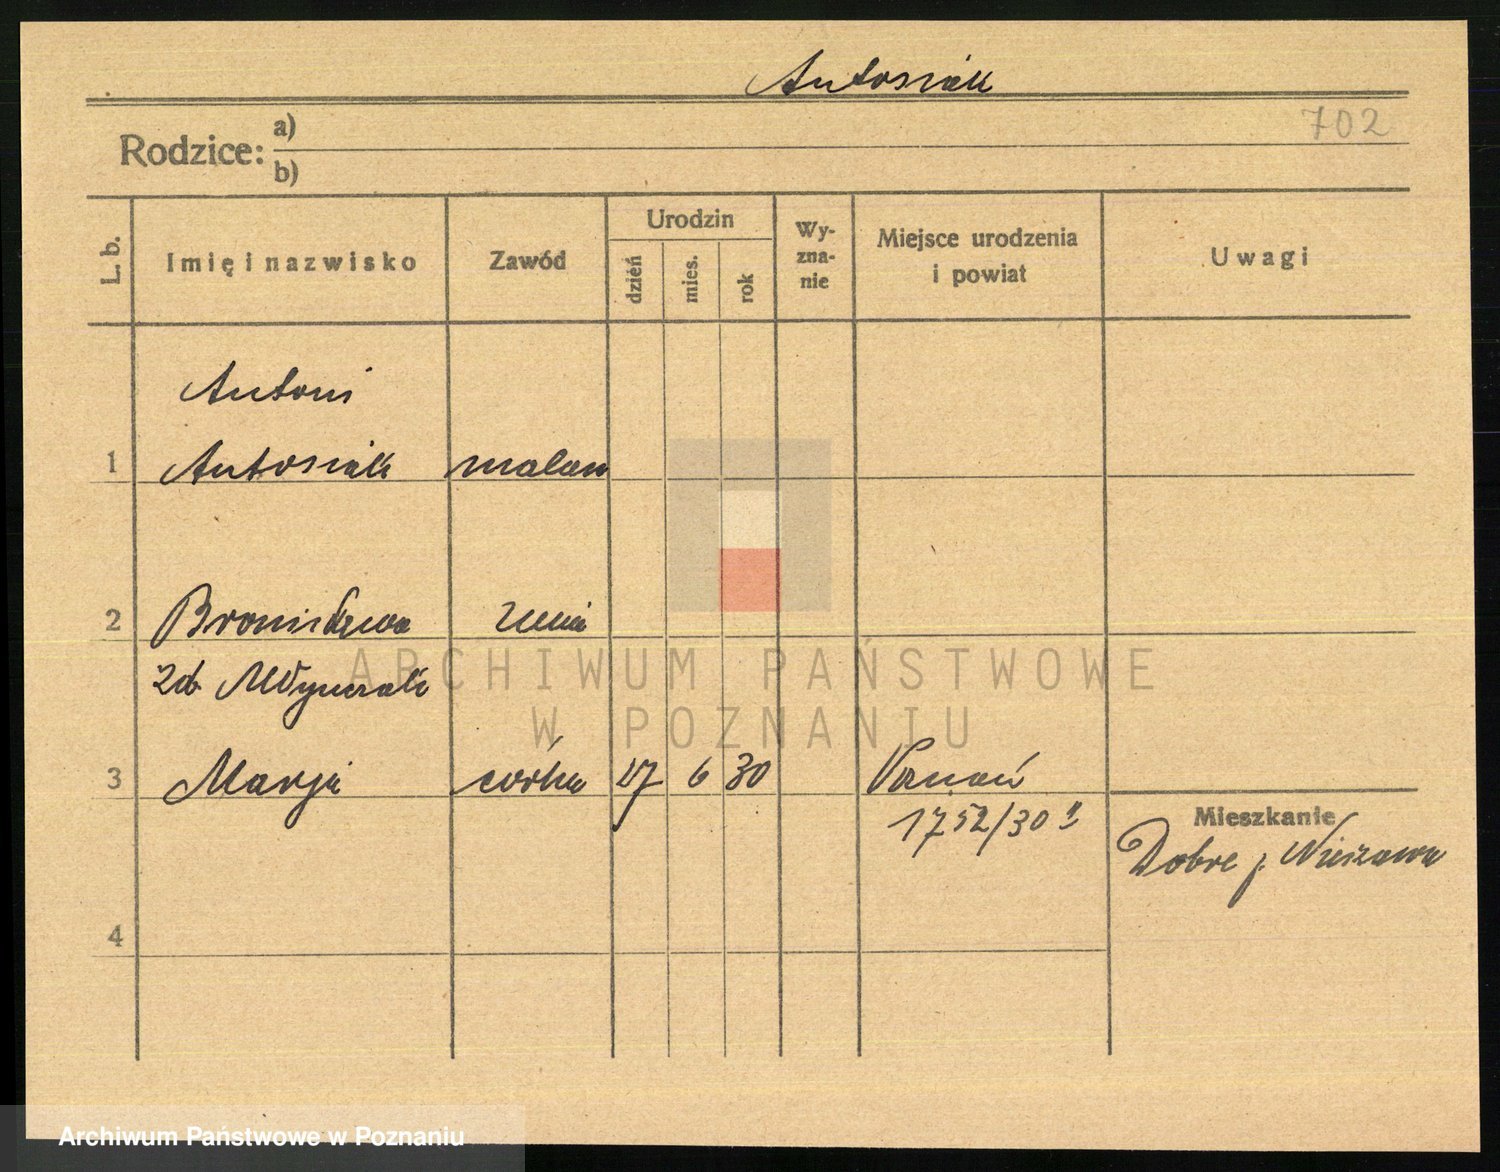 Antosiak
702
Rodzice: a)
b)
L. b.
Imię i nazwisko
Zawód
Urodzin
dzień
mies.
rok
Wy-
zna-
nie
Miejsce urodzenia
i powiat
Uwagi
Antoni
1 Antosiak malarz
2 Bronisława żona
zd Młynczak
3 Marja córka 17 6 30 Poznań
1752/30
Mieszkanie
Dobre p.
4
ARCHIWUM PAŃSTWOWE
W POZNANIU
Archiwum Państwowe w Poznaniu